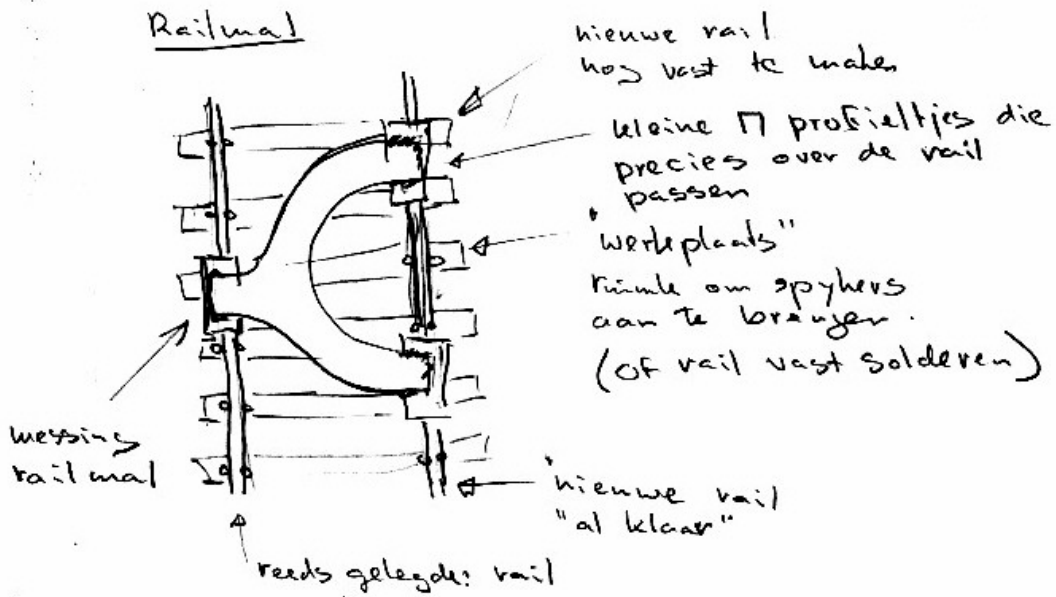 Railmal
nieuwe rail
nog vast te maken
kleine Π profieltjes die
precies over de rail
passen
"werkplaats"
ruimte om spijkers
aan te brengen.
(of rail vast solderen)
messing
railmal
nieuwe rail
"al klaar"
reeds gelegde: rail